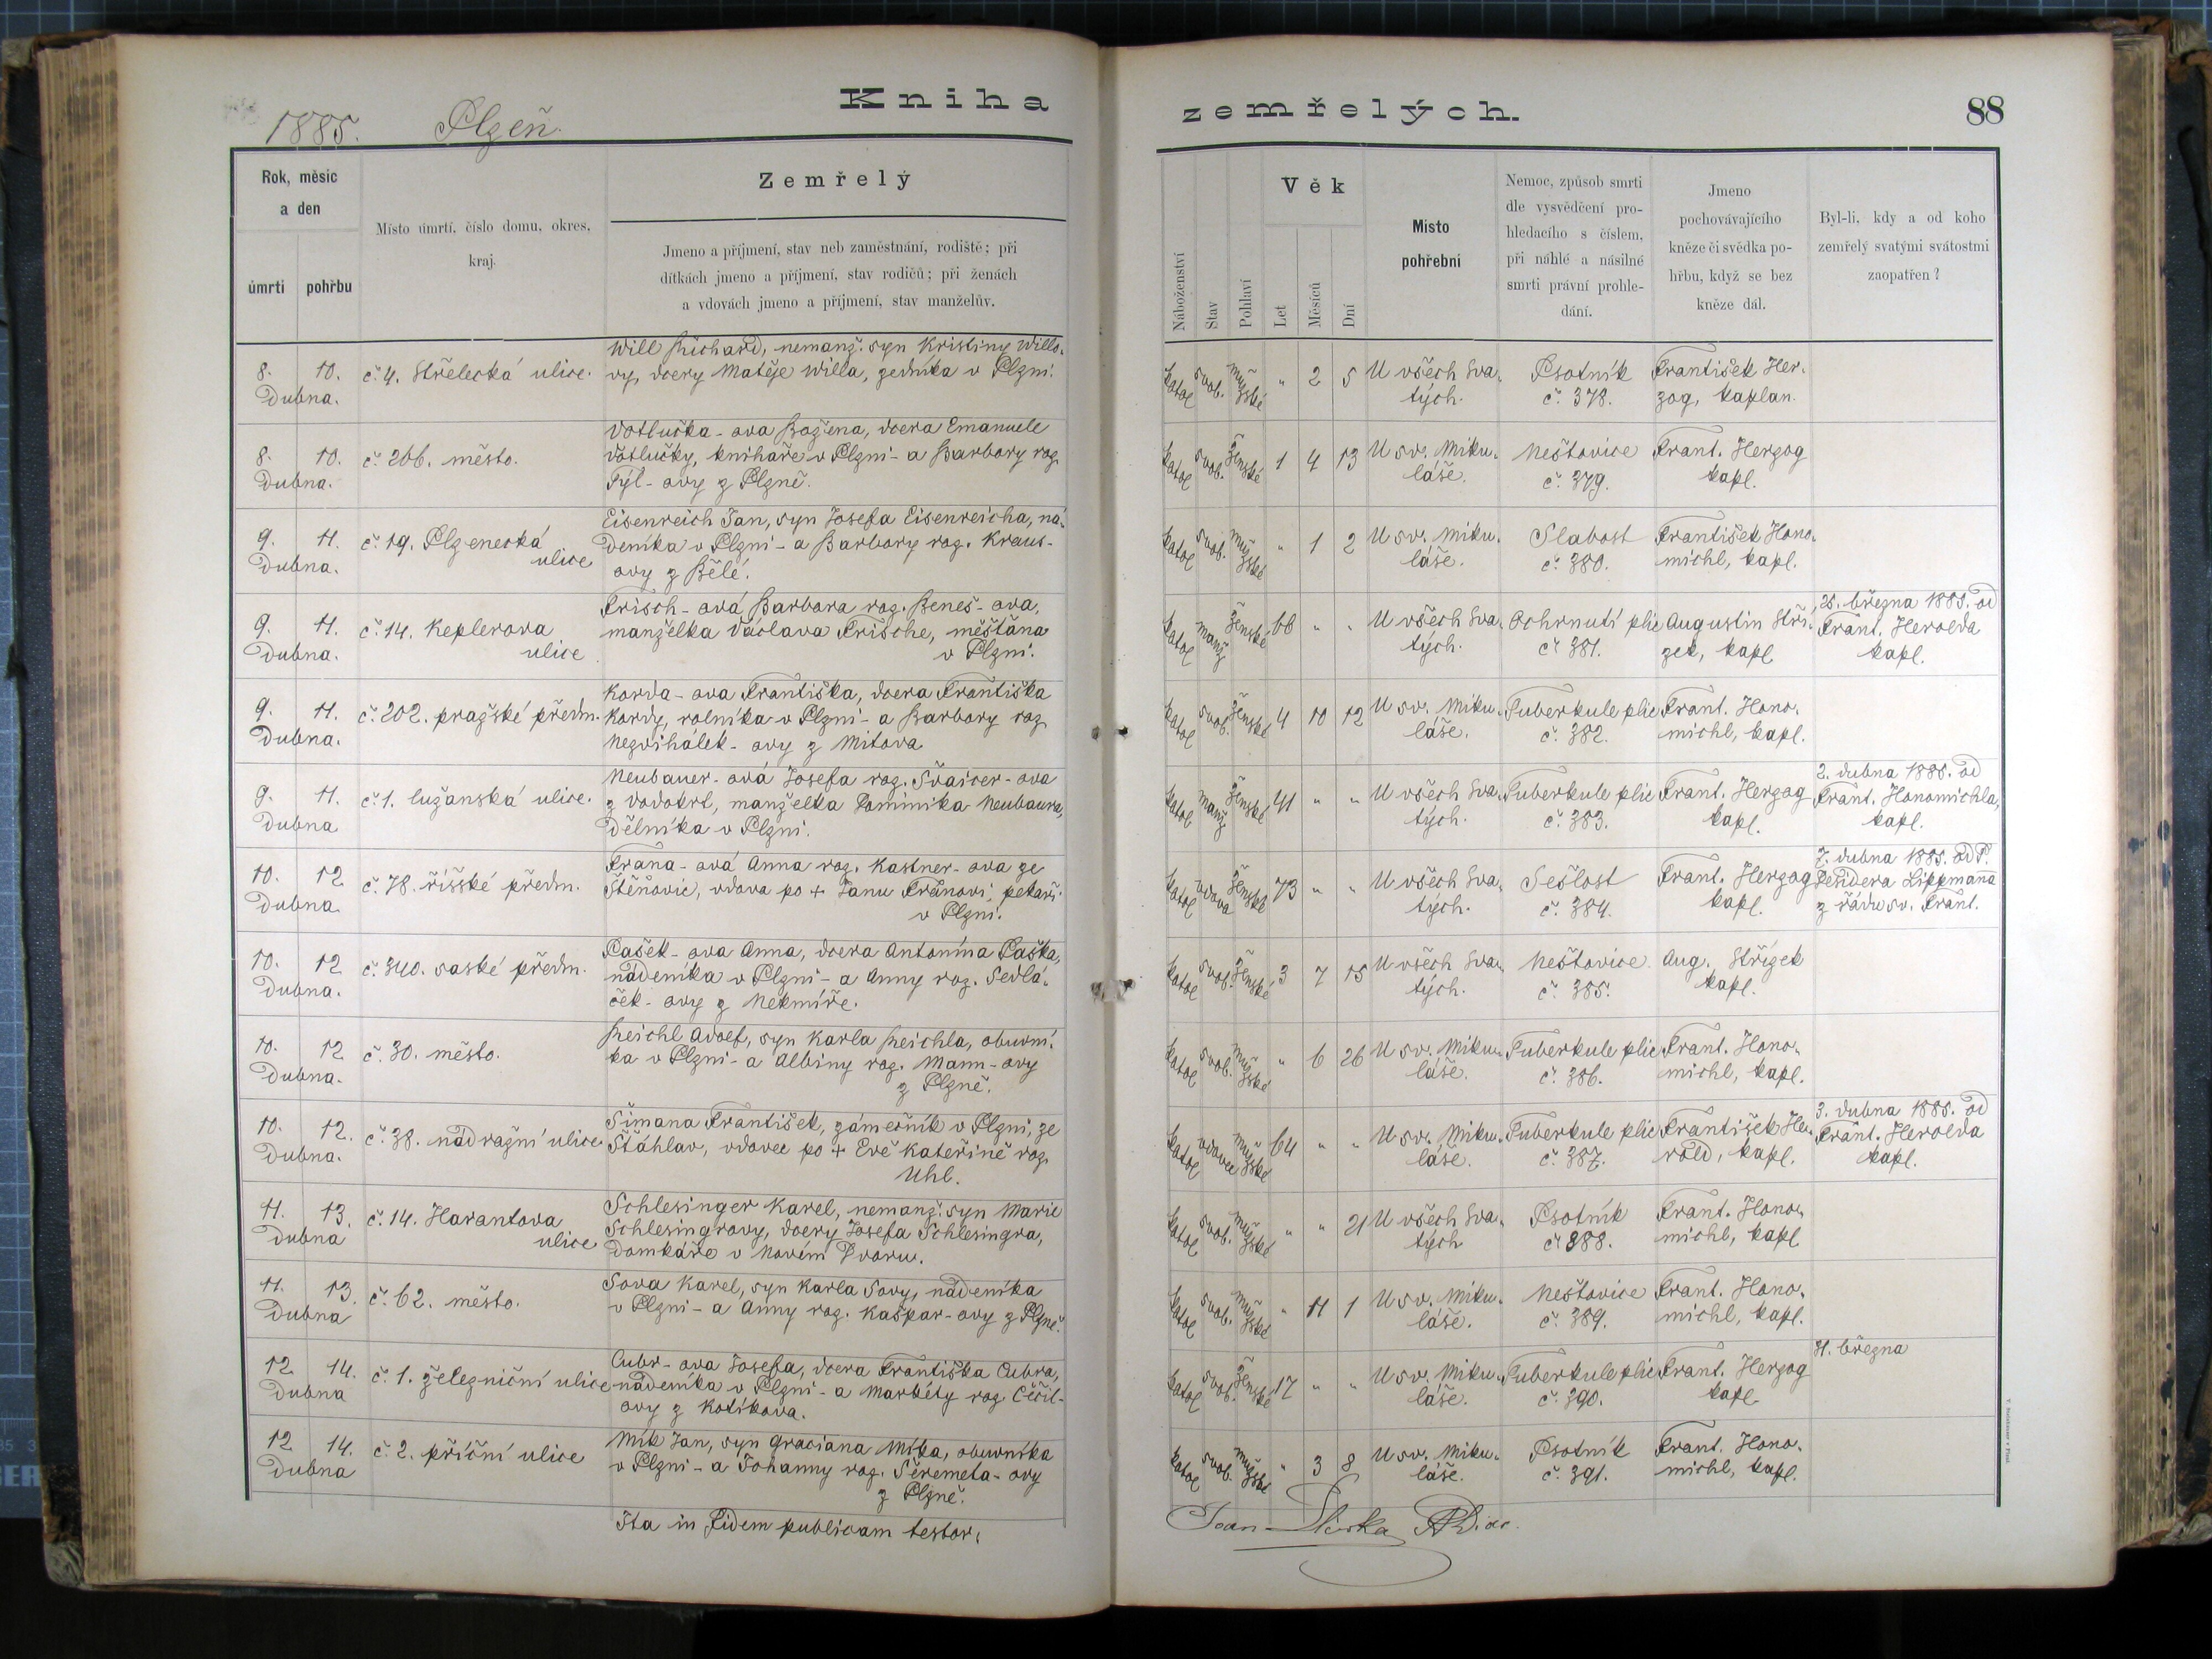 1885. Plzeň.
Kniha
zemřelých.
88
Rok, měsíc
a den
úmrtí
pohřbu
Místo úmrtí, číslo domu, okres,
kraj.
Zemřelý
Jmeno a příjmení, stav neb zaměstnání, rodiště; při
dítkách jmeno a příjmení, stav rodičů; při ženách
a vdovách jmeno a příjmení, stav manželův.
Náboženství
Stav
Pohlaví
Věk
Let
Měsíců
Dní
Místo
pohřební
Nemoc, způsob smrti
dle vysvědčení pro-
hledacího s číslem,
při náhlé a násilné
smrti právní prohle-
dání.
Jmeno
pochovávajícího
kněze či svědka po-
hřbu, když se bez
kněze dál.
Byl-li, kdy a od koho
zemřelý svatými svátostmi
zaopatřen?
8. 10.
Dubna.
č. 4. Střelecká ulice.
Will Richard, nemanž. syn Kristiny Willo-
vy, dcery Matěje Willa, zedníka v Plzni.
katol svob. mužské " 2 5
U všech Sva-
tých.
Psotník
č. 378.
František Her-
zog, kaplan.
8. 10.
Dubna.
č. 266. město.
Votlučka-ova Božena, dcera Emanuele
Votlučky, knihaře v Plzni - a Barbory roz.
Týl-ovy z Plzně.
katol svob. ženské 1 4 13
U sv. Miku-
láše.
Neštovice
č. 379.
Frant. Herzog
kapl.
9. 11.
Dubna.
č. 19. Plzenecká
ulice
Eisenreich Jan, syn Josefa Eisenreicha, ná-
deníka v Plzni - a Barbory roz. Kraus-
ovy z Bělé.
katol svob. mužské " 1 2
U sv. Miku-
láše.
Slabost
č. 380.
František Hono-
michl, kapl.
9. 11.
Dubna.
č. 14. Keplerova
ulice
Frisch-ová Barbara roz. Beneš-ova,
manželka Václava Frische, měšťana
v Plzni.
katol manž ženské 66 " "
U všech Sva-
tých.
Ochrnutí plic
č. 381.
Augustin Stří-
zek, kapl.
25. března 1885. od
Frant. Herolda
kapl.
9. 11.
Dubna.
č. 202. pražské předm.
Korda-ova Františka, dcera Františka
Kordy, rolníka v Plzni - a Barbory roz.
Nezvihálek-ovy z Mitova
katol svob. ženské 4 10 12
U sv. Miku-
láše.
Tuberkule plic
č. 382.
Frant. Hono-
michl, kapl.
9. 11.
Dubna
č. 1. lužanská ulice.
Neubauer-ová Josefa roz. Švaicer-ova
z Vodokrt, manželka Dominika Neubaura,
dělníka v Plzni.
katol manž ženské 41 " "
U všech Sva-
tých.
Tuberkule plic
č. 383.
Frant. Herzog
kapl.
2. dubna 1885. od
Frant. Honomichla,
kapl.
10. 12
Dubna
č. 78. říšské předm.
Frána-ová Anna roz. Kastner-ova ze
Štěňovic, vdova po + Janu Fránovi, pekaři
v Plzni.
katol vdova ženské 73 " "
U všech Sva-
tých.
Sešlost
č. 384.
Frant. Herzog
kapl.
7. dubna 1885. od P.
Desidera Lippmana
z řádu sv. Frant.
10. 12
Dubna.
č. 340. saské předm.
Pašek-ova Anna, dcera Antonína Paška,
nádeníka v Plzni - a Anny roz. Sedlá-
ček-ovy z Nekmíře.
katol svob. ženské 3 7 15
U všech Sva-
tých.
Neštovice
č. 385.
Aug. Střízek
kapl.
10. 12
Dubna.
č. 30. město.
Reichl Adolf, syn Karla Reichla, obuvní-
ka v Plzni - a Albiny roz. Mann-ovy
z Plzně.
katol svob. mužské " 6 26
U sv. Miku-
láše.
Tuberkule plic
č. 386.
Frant. Hono-
michl, kapl.
10. 12.
Dubna.
č. 38. nádražní ulice
Šimana František, zámečník v Plzni, ze
Štáhlav, vdovec po + Evě Kateřině roz.
Uhl.
katol vdovec mužské 64 " "
U sv. Miku-
láše.
Tuberkule plic
č. 387.
František He-
rold, kapl.
3. dubna 1885. od
Frant. Herolda
kapl.
11. 13.
Dubna
č. 14. Harantova
ulice
Schlesinger Karel, nemanž. syn Marie
Schlesingrovy, dcery Josefa Schlesingra,
domkáře v Novém Dvoru.
katol svob. mužské " " 21
U všech Sva-
tých
Psotník
č. 388.
Frant. Hono-
michl, kapl
11. 13.
Dubna
č. 62. město.
Sova Karel, syn Karla Sovy, nádeníka
v Plzni - a Anny roz. Kašpar-ovy z Plzně.
katol svob. mužské " 11 1
U sv. Miku-
láše.
Neštovice
č. 389.
Frant. Hono-
michl, kapl.
12 14.
Dubna
č. 1. železniční ulice
Cubr-ova Josefa, dcera Františka Cubra,
nádeníka v Plzni - a Markéty roz
ovy z Kotíkova.
katol svob. ženské 17 " "
U sv. Miku-
láše.
Tuberkule plic
č. 390.
Frant. Herzog
kapl
března
12 14.
Dubna
č. 2. příční ulice
Mík Jan, syn Graciana Míka, obuvníka
v Plzni - a Johanny roz. Šeremeta-ovy
z Plzně.
katol svob. mužské " 3 8
U sv. Miku-
láše.
Psotník
č. 391.
Frant. Hono-
michl, kapl.
Ita in fidem publicam testor.